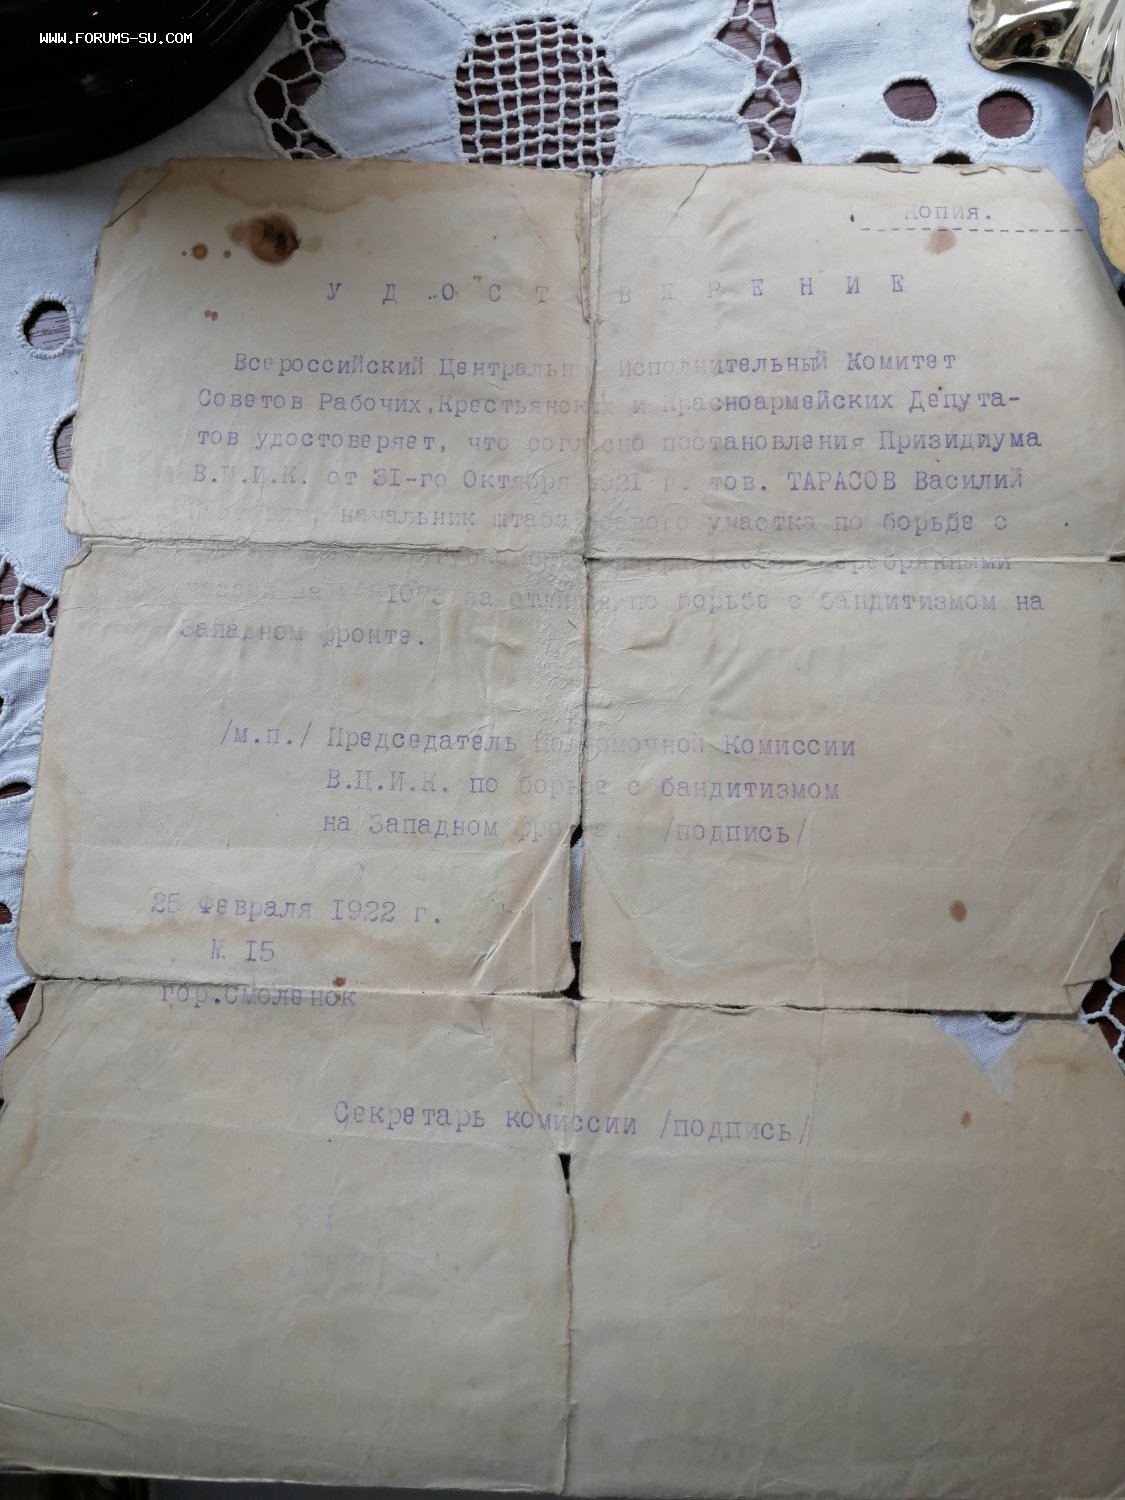 WWW.FORUMS-SU.COM
Копия.
У Д О С Т В Е Р Е Н И Е
Всероссийский Центральны Исполнительный Комитет
Советов Рабочих,Крестьянских и Красноармейских Депута-
тов удостоверяет, что согласно постановления Призидиума
В.Ц.И.К. от 31-го Октября 1921 г. тов. ТАРАСОВ Василий
начальник штаба участка по борьбе с
серебрянными
часами за № 1073 за отличия по борьбе с бандитизмом на
Западном фронте.
/м.п./ Председатель Комиссии
В.Ц.И.К. по борьбе с бандитизмом
на Западном фронте. /подпись/
25 Февраля 1922 г.
№ 15
гор.Смоленок
Секретарь комиссии /подпись/